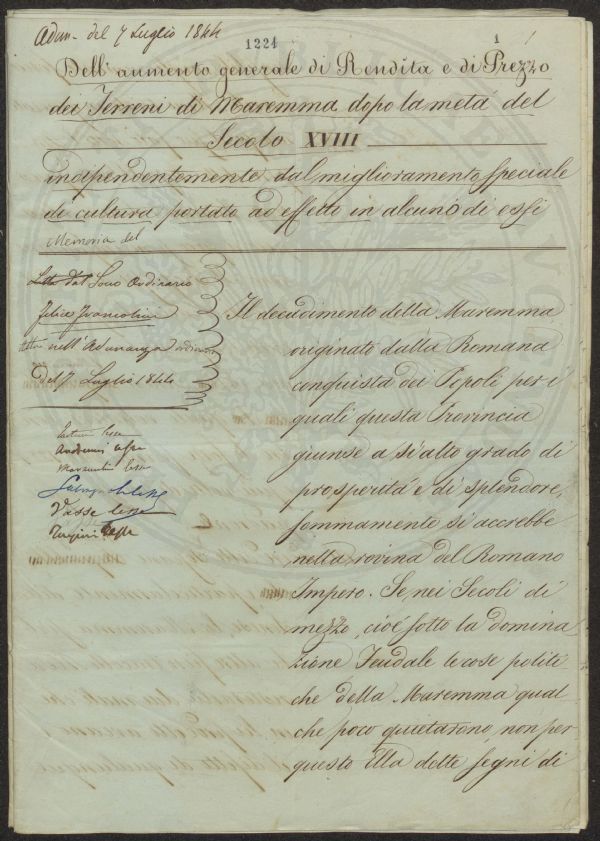 Adun. del 7 Luglio 1844
1224
1
Dell'aumento generale di Rendita e di Prezzo
dei Terreni di Maremma dopo la metá del
Secolo XVIII
independentemente dal miglioramento speciale
di cultura portato ad effetto in alcuno di essi
Memoria del
Letta dal Socio Ordinario
Felice Francolini
nell'Adunanza ordinaria
del 7 Luglio 1844
Il decadimento della Maremma
originato dalla Romana
conquista dei Popoli per i
quali questa Provincia
giunse a sì alto grado di
prosperitá e di splendore,
sommamente si accrebbe
nella rovina del Romano
Impero. Se, nei Secoli di
mezzo, cioé sotto la domina
zione Feudale le cose politi
che della Maremma qual
che poco quietarono, non per
questo Ella dette segni di
lesse
lesse
Vasse lesse